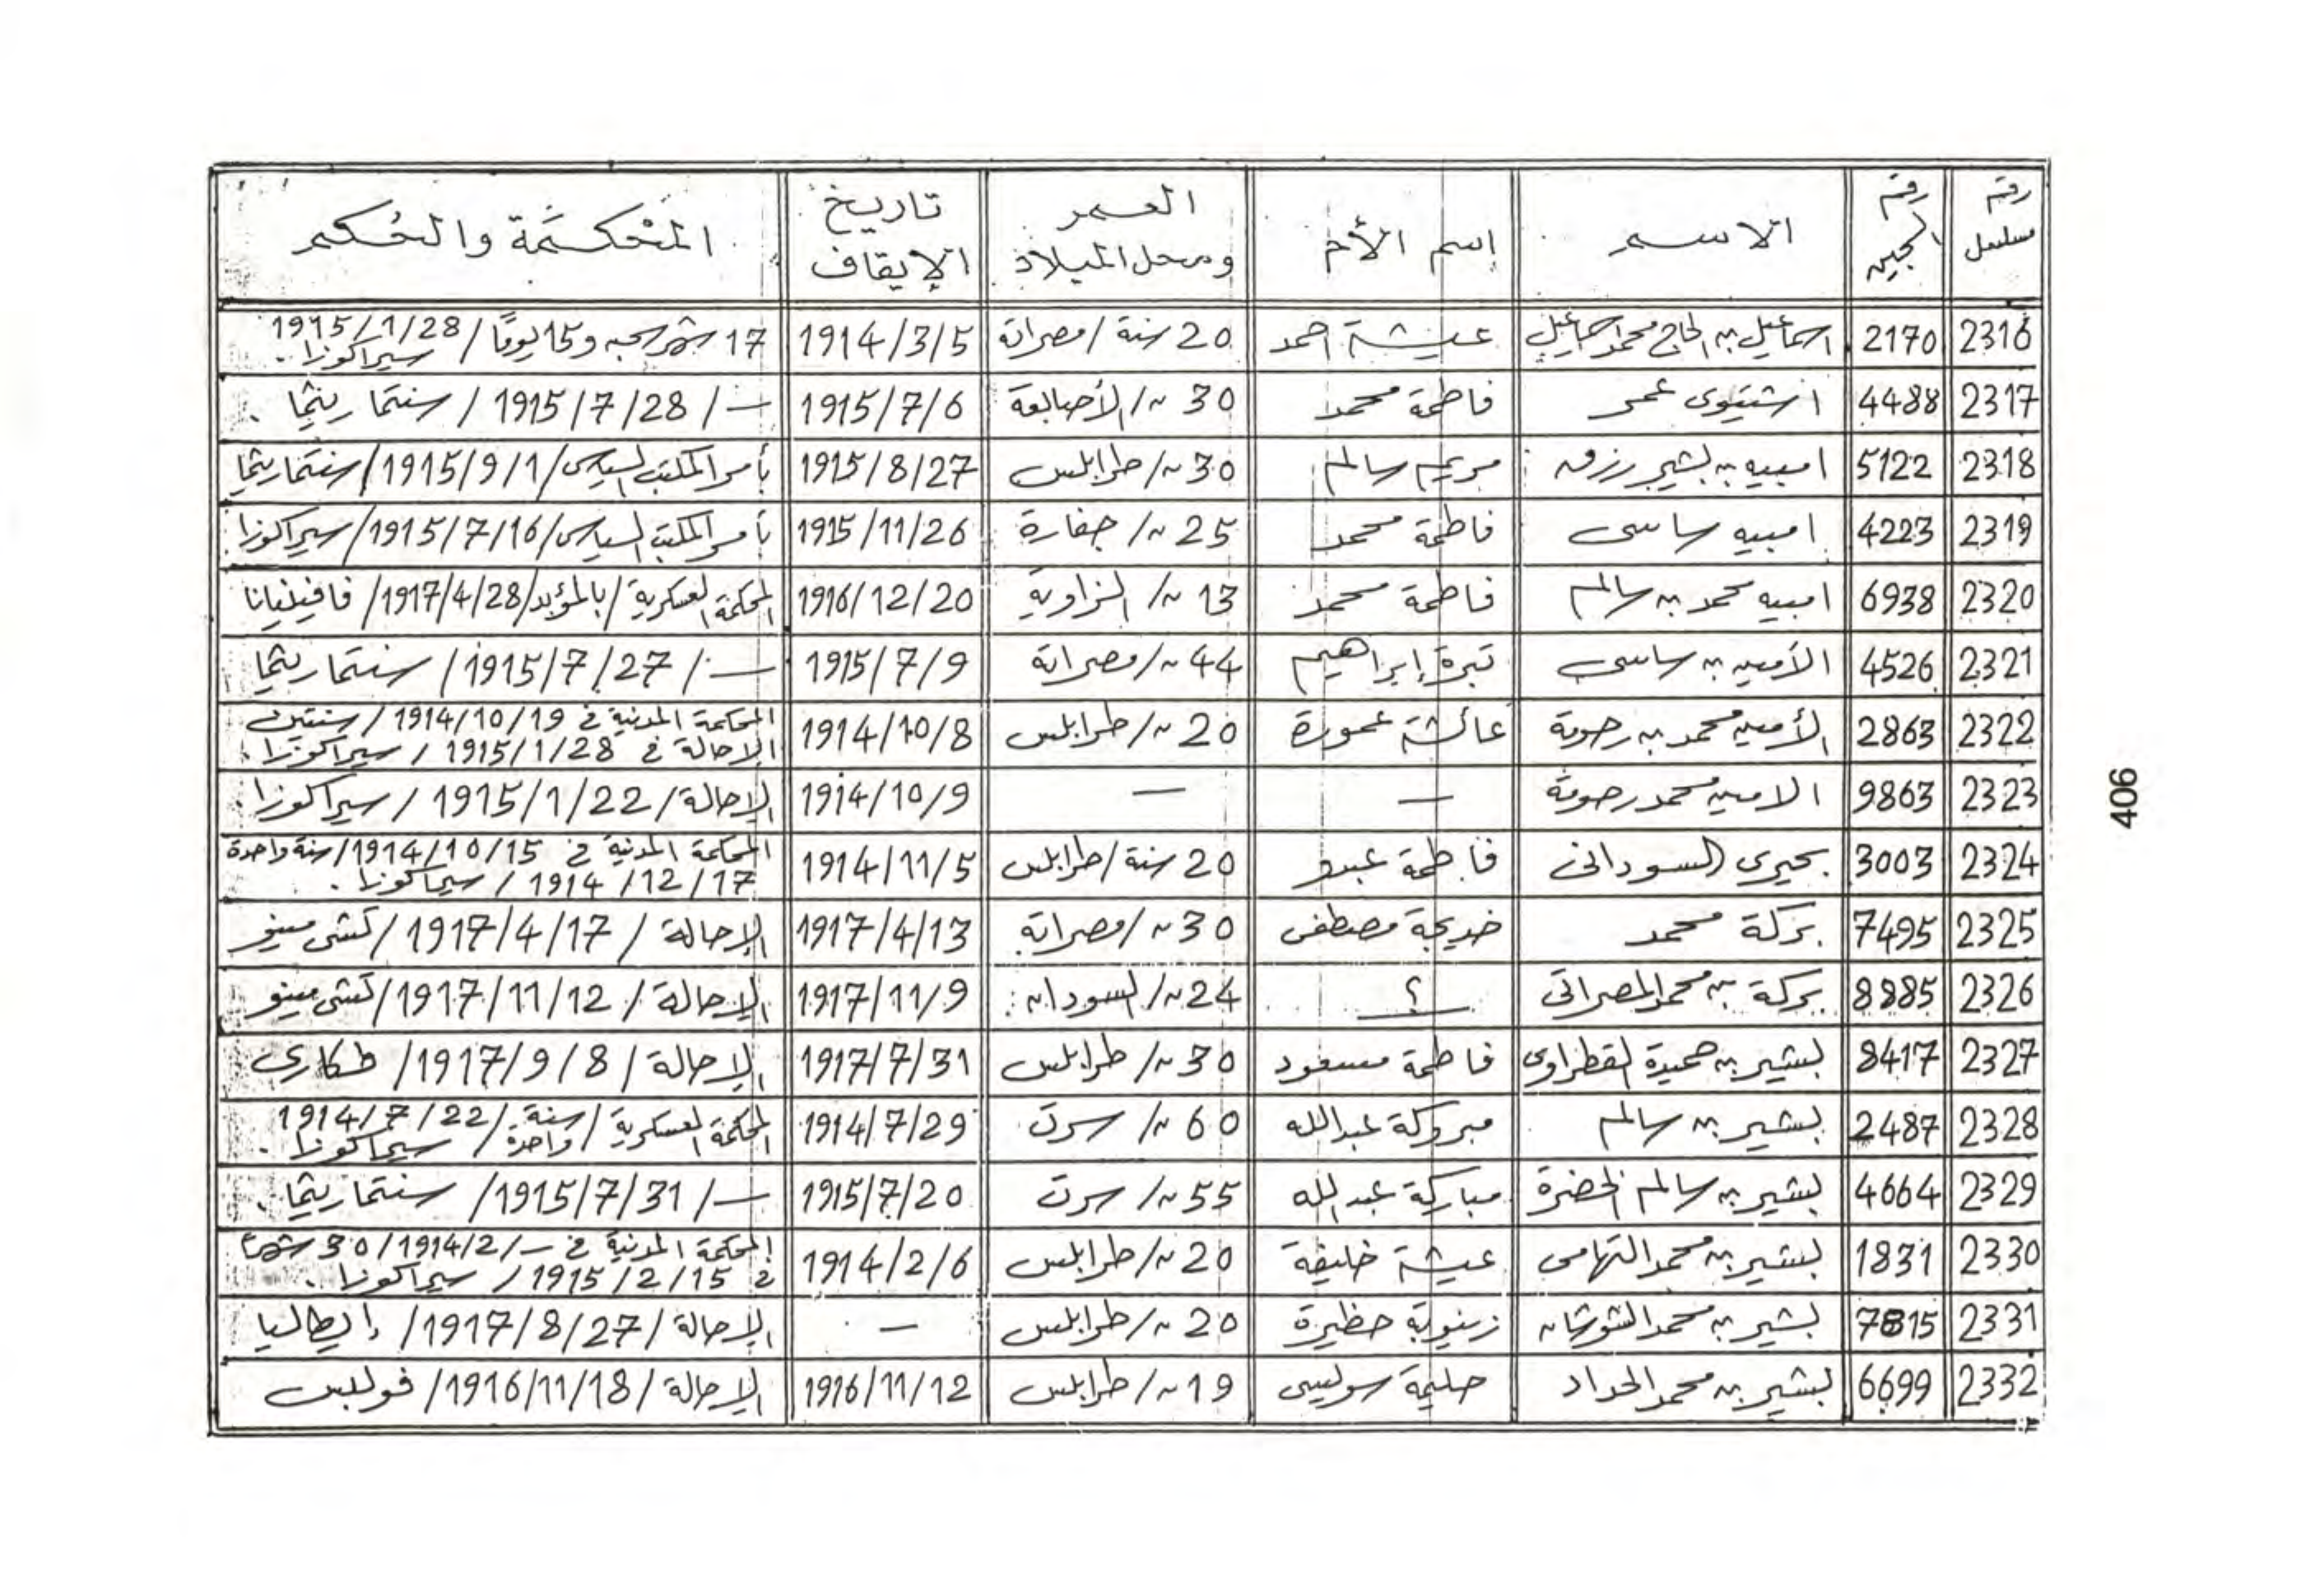 رقم مسلسل | رقم السجين | الاسم | إسم الأم | العمر ومحل الميلاد | تاريخ الإيقاف | المحكمة والحكم
2316 | 2170 | اسماعيل بن الحاج محمد اسماعيل | عيشة احمد | 20 سنة / مصراتة | 1914/3/5 | 17 شهر سجن و 15 يومًا / 1915/1/28 / سيراكوزا.
2317 | 4488 | اشتيوى عمر | فاطمة محمد | 30 // / الأصابعة | 1915/7/6 | — / 1915/7/28 / سنتماريثما.
2318 | 5122 | امبيه بن بشير رزق | مريم سالم | 30 // / طرابلس | 1915/8/27 | بأمر المكتب السياسى / 1915/9/1 / سنتماريثما
2319 | 4223 | امبيه ساسى | فاطمة محمد | 25 // / جفارة | 1915/11/26 | بأمر المكتب السياسى / 1915/7/16 / سيراكوزا
2320 | 6938 | امبيه محمد بن سالم | فاطمة محمد | 13 // / الزاوية | 1916/12/20 | المحكمة العسكرية / بالمؤبد / 1917/4/28 / فافينيانا
2321 | 4526 | الأمين بن ساسى | تبرة إبراهيم | 44 // / مصراتة | 1915/7/9 | — / 1915/7/27 / سنتماريثما
2322 | 2863 | الأمين محمد بن رحومة | عائشة عمورة | 20 // / طرابلس | 1914/10/8 | المحكمة المدنية في 1914/10/19 / سنتين
الإحالة في 1915/1/28 / سيراكوزا.
2323 | 9863 | الامين محمد رحومة | — | — | 1914/10/9 | الإحالة / 1915/1/22 / سيراكوزا.
2324 | 3003 | بحيرى السودانى | فاطمة عبدو | 20 سنة / طرابلس | 1914/11/5 | المحكمة المدنية في 1914/10/15 / سنة واحدة
1914/12/17 / سيراكوزا.
2325 | 7495 | بركة محمد | خديجة مصطفى | 30 // / مصراتة | 1917/4/13 | الإحالة / 1917/4/17 / كشى مينو
2326 | 8885 | بركة بن محمد المصراتى | ؟ | 24 // / السودان | 1917/11/9 | الإحالة / 1917/11/12 / كشى مينو
2327 | 8417 | بشير بن حميدة القطراوى | فاطمة مسعود | 30 // / طرابلس | 1917/7/31 | الإحالة / 1917/9/8 / طكارى
2328 | 2487 | بشير بن سالم | مبروكة عبدالله | 60 // / سرت | 1914/7/29 | المحكمة العسكرية / سنة واحدة / 1914/7/22 / سيراكوزا.
2329 | 4664 | بشير بن سالم الخضرة | مباركة عبدالله | 55 // / سرت | 1915/7/20 | — / 1915/7/31 / سنتماريثما.
2330 | 1831 | بشير بن محمد التهامى | عيشة خليفة | 20 // / طرابلس | 1914/2/6 | المحكمة المدنية في — / 1914/2 / 30 شهرًا
في 1915/2/15 / سيراكوزا.
2331 | 7815 | بشير بن محمد الشوشان | زينوبة حظيرة | 20 // / طرابلس | — | الإحالة / 1917/8/27 / إيطاليا
2332 | 6699 | بشير بن محمد الحداد | حليمة سوليسى | 19 // / طرابلس | 1916/11/12 | الإحالة / 1916/11/18 / فولبس
406